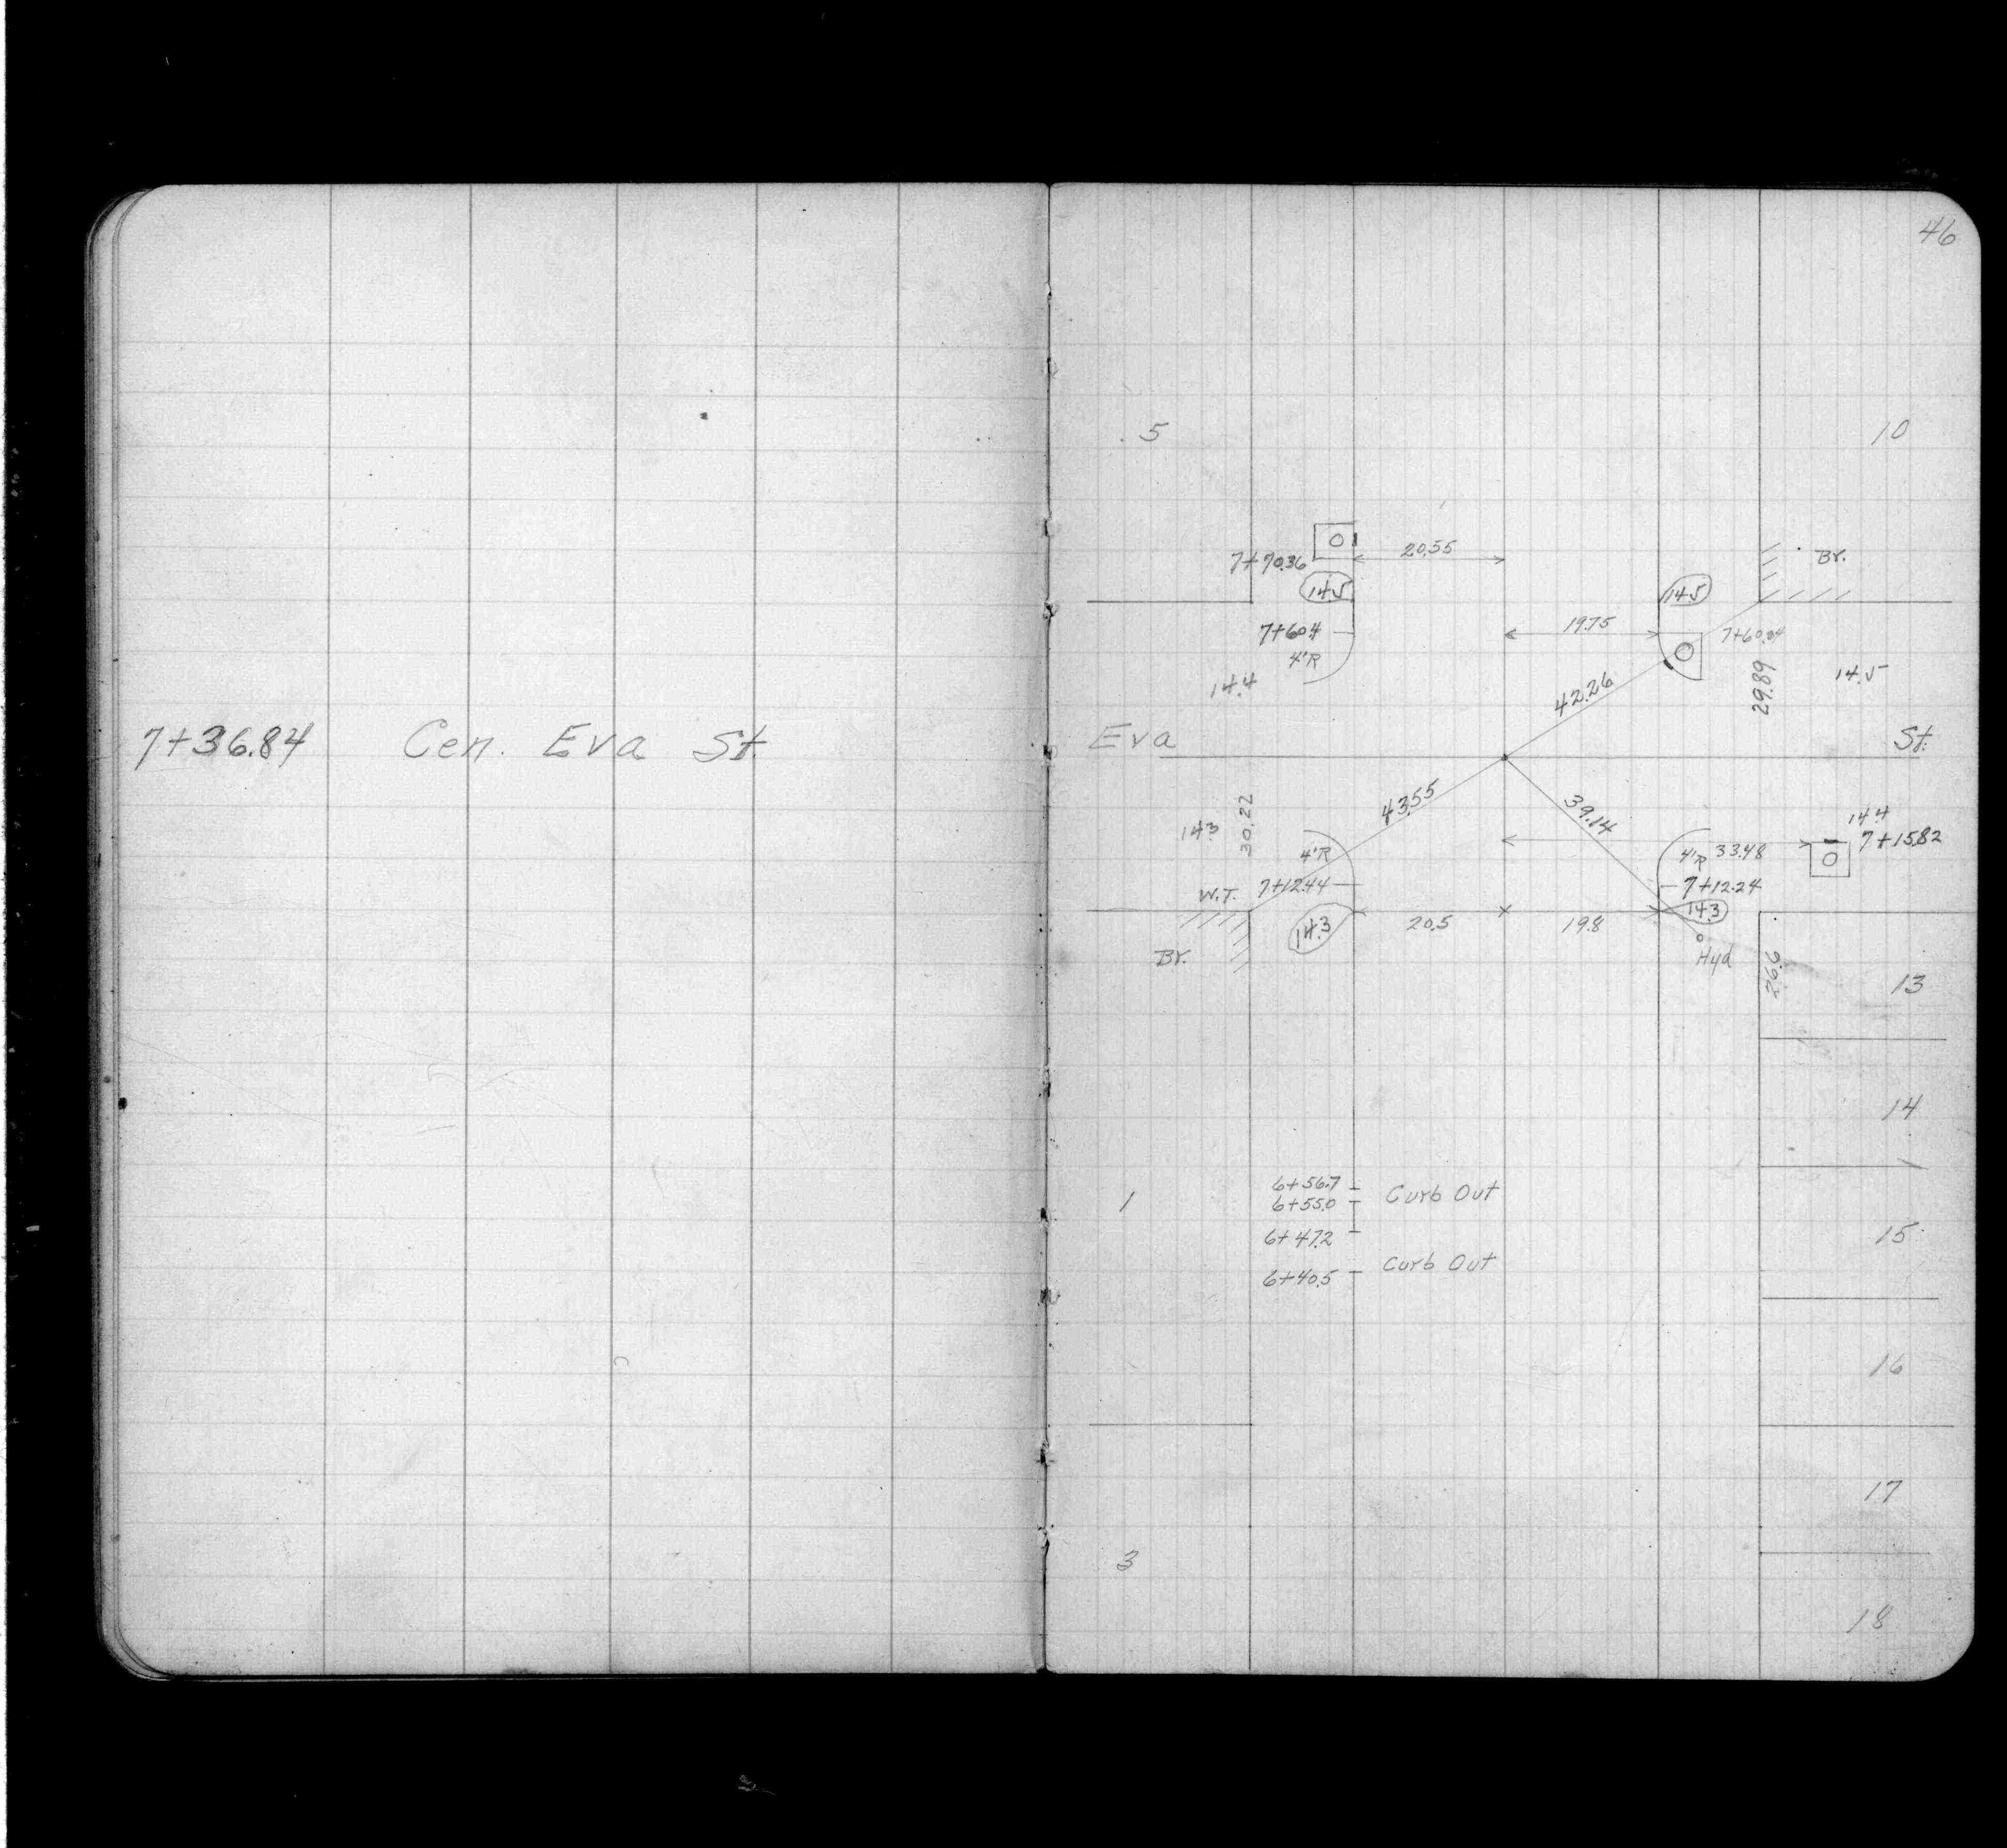 46
5
10
20.55
7+70.36
Br.
14.5
14.5
7+60.4
19.75
7+60.04
4'R
14.4
42.26
29.89
14.5
7+36.84 Cen. Eva St.
Eva St.
14.3
30.22
43.55
39.14
14.4
7+15.82
4'R
4'R
33.48
W.T.
7+12.44
7+12.24
14.3
14.3
20.5
19.8
Br.
Hyd
26.6
13
14
6+56.7
6+55.0
Curb Out
1
6+47.2
15
6+40.5
Curb Out
16
17
3
18